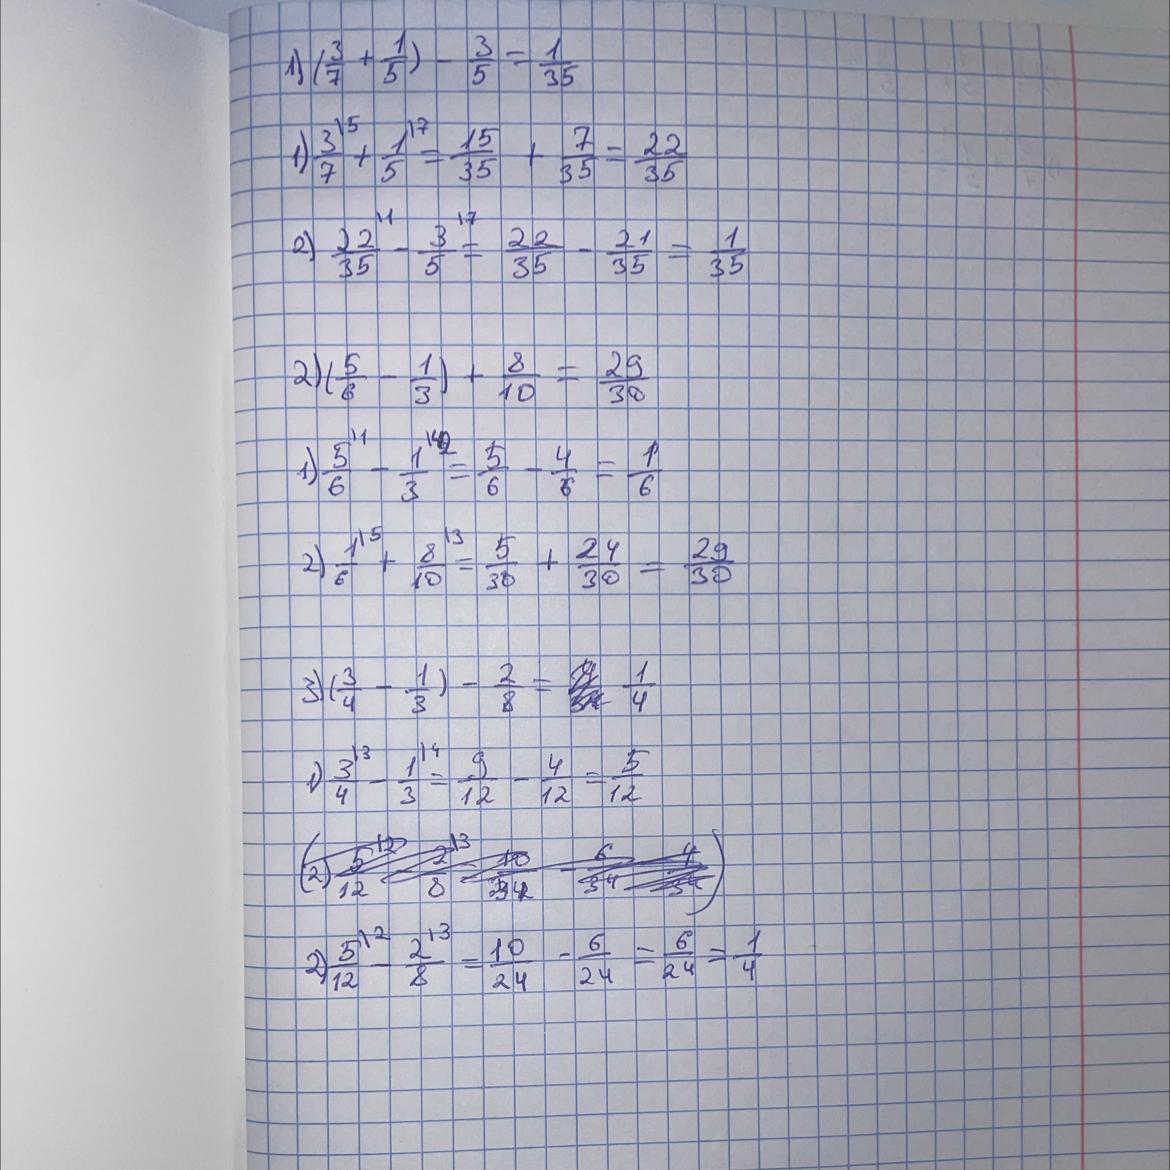 1) (3/7 + 1/5) - 3/5 = 1/35
1) 3/7 \5 + 1/5 \7 = 15/35 + 7/35 = 22/35
2) 22/35 \1 - 3/5 \7 = 22/35 - 21/35 = 1/35
2) (5/6 - 1/3) + 8/10 = 29/30
1) 5/6 \1 - 1/3 \2 = 5/6 - 4/6 = 1/6
2) 1/6 \5 + 8/10 \3 = 5/30 + 24/30 = 29/30
3) (3/4 - 1/3) - 2/8 = 1/4
1) 3/4 \3 - 1/3 \4 = 9/12 - 4/12 = 5/12
(2) 5/12 \2 2/8 \3 10/34 - 6/34 4/34)
2) 5/12 \2 - 2/8 \3 = 10/24 - 6/24 = 6/24 = 1/4